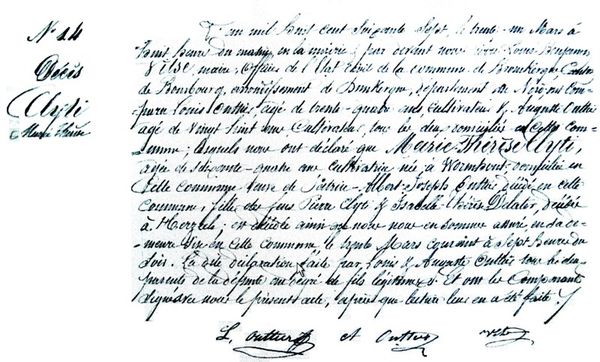 N° 14
Décès
Clyti
Marie Thérèse
L'an mil huit cent soixante sept, le trente un Mars à
huit heures du matin, en la mairie; par devant nous Louis Benjamin
maire, Officier de l'Etat Civil de la commune de Broukerque Canton
de Bourbourg, arrondissement de Dunkerque, département du Nord, ont com-
paru Louis Outtier, agé de trente-quatre ans cultivateur & Auguste Outtier
agé de vingt huit ans Cultivateur, tous les deux domiciliés en cette Com-
mune; lesquels nous ont déclaré que Marie Thérèse Clyti,
agée de soixante-quatre ans cultivatrice née à Wormhout, domiciliée en
cette commune veuve de Albert-Joseph Outtier décédé en cette
Commune, fille des feus Pierre Clyti & Isabelle décédés
à Herzeele; est décédée ainsi que nous nous en sommes assuré, en sa de-
meure sise en cette commune le trente Mars courant à sept heures du
soir. La dite déclaration faite par Louis & Auguste Outtier tous les deux
parents de la défunte au dégré de fils légitimes. Et ont les Comparants
signé avec nous le présent acte, après que lecture leur en a été faite
L. Outtier et Outtier